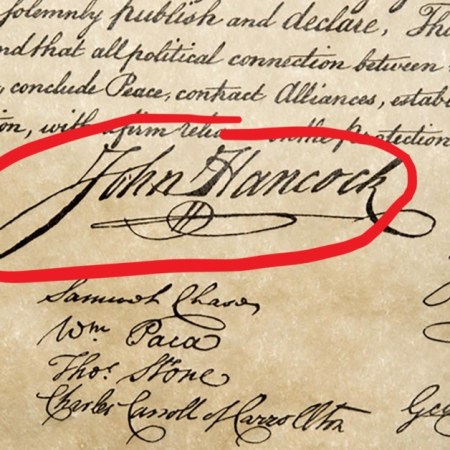 solemnly publish and declare, Tha
and that all political connection between
conclude Peace, contract Alliances, estab
on, with a firm relia on the Protection
John Hancock
Samuel Chase
Wm. Paca
Thos. Stone
Charles Carroll of Carrollton
Geo